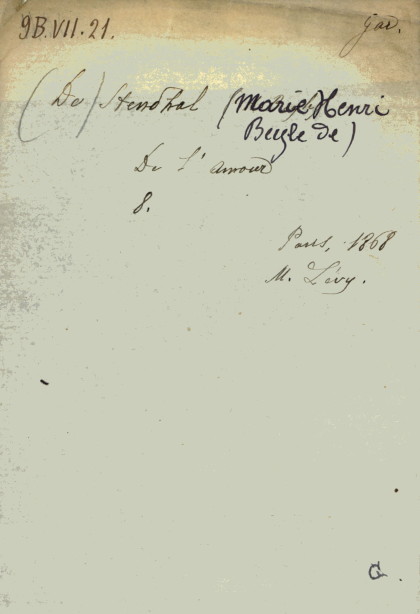 9B.VII.21.
(De) Stendhal (Marie Henri
Beyle de)
De L'amour
8.
Paris, 1868
M. Lévy.
G.